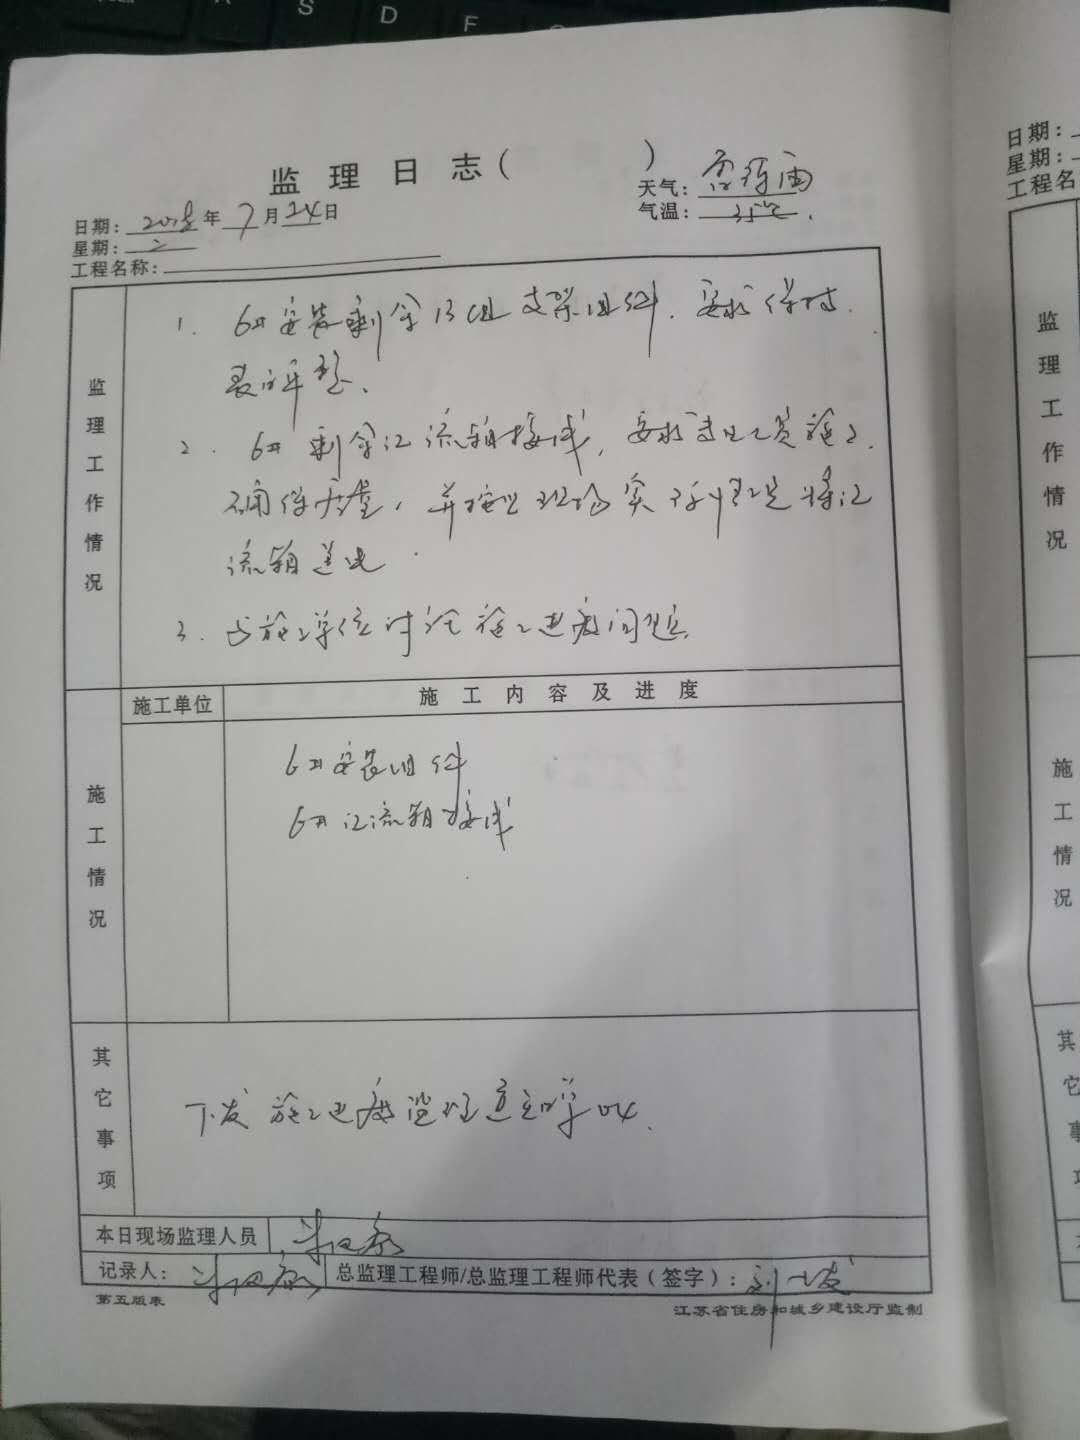 A S D F
监理日志( )
天气: 雷阵雨
气温: 35℃.
日期: 2018年 7月24日
星期: 二
工程名称:
监理工作情况
1. 6#安装剩余13组支架组件. 要求保持.
表面平整.
2. 6#剩余汇流箱接线, 要求专业人员施工.
确保质量, 并按照现场实际情况将汇
流箱送电.
3. 与施工单位讨论施工进度问题.
施工情况
施工单位 施工内容及进度
6#安装组件
6#汇流箱接线
其它事项
下发施工进度监理通知单04.
本日现场监理人员
记录人: 总监理工程师/总监理工程师代表(签字):
第五版表 江苏省住房和城乡建设厅监制
日期:
星期:
工程名
监理工作情况
施工情况
其它事项